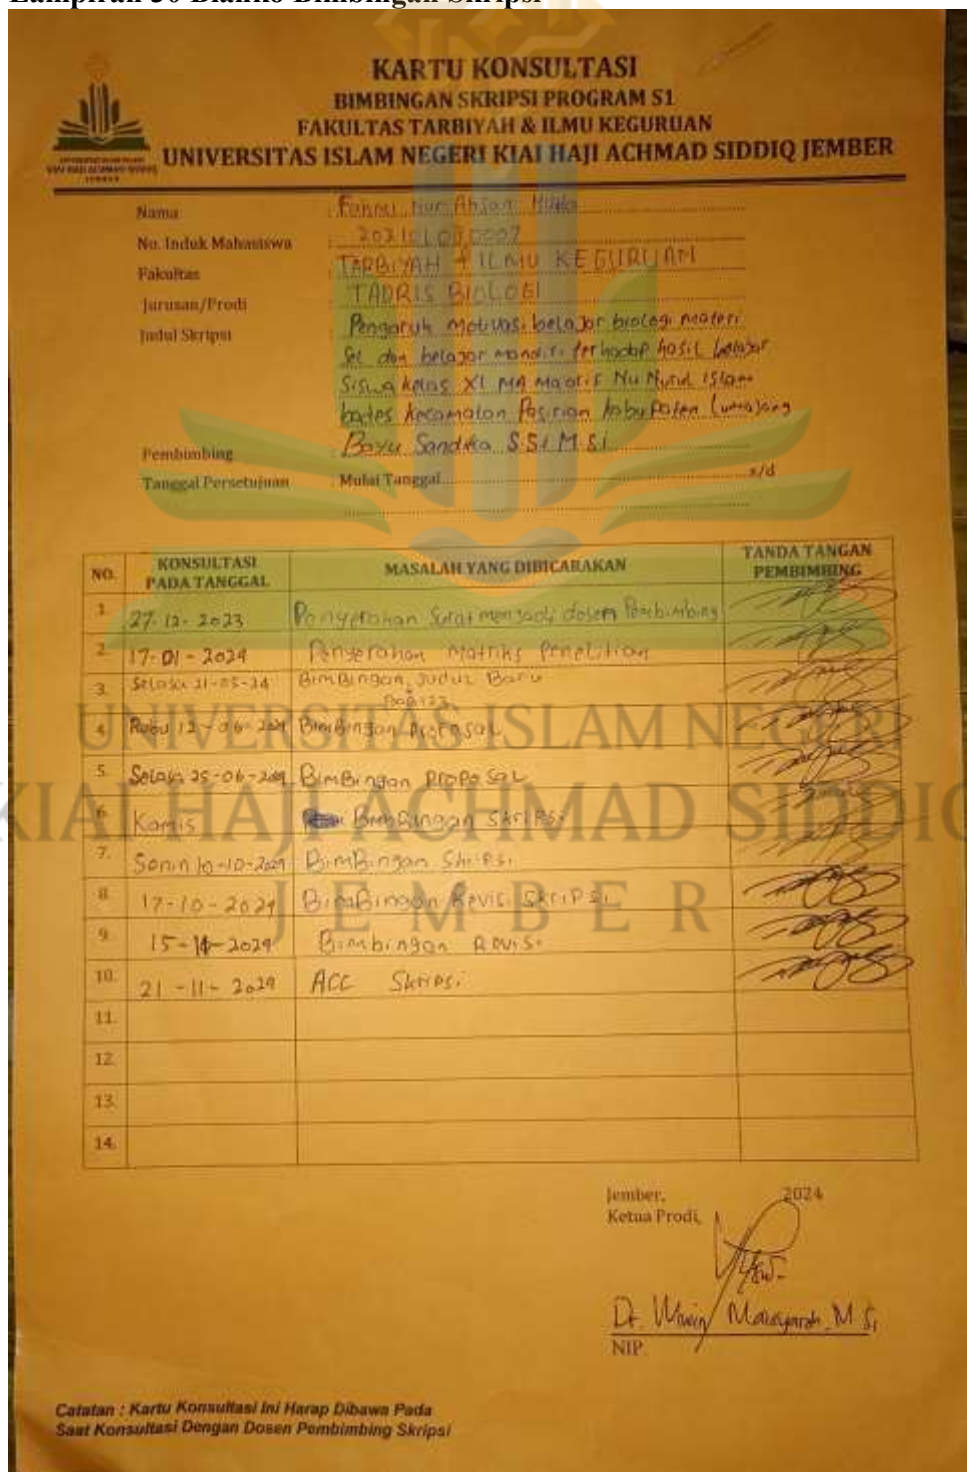 Lampiran 30 Blanko Bimbingan Skripsi
KARTU KONSULTASI
BIMBINGAN SKRIPSI PROGRAM S1
FAKULTAS TARBIYAH & ILMU KEGURUAN
UNIVERSITAS ISLAM NEGERI KIAI HAJI ACHMAD SIDDIQ JEMBER
Nama : Fahmi Nur Ahsan
No. Induk Mahasiswa :
Fakultas : TARBIYAH + ILMU KEGURUAN
Jurusan/Prodi : TADRIS BIOLOGI
Judul Skripsi : Pengaruh Motivasi belajar biologi materi
Sel dan belajar mandiri terhadap hasil belajar
Siswa kelas XI MA Maarif Nu Nurul Islam
bades kecamatan Pasirian kabupaten Lumajang
Pembimbing : Bayu Sandika S.Si M.Si
Tanggal Persetujuan : Mulai Tanggal s/d
NO. KONSULTASI PADA TANGGAL MASALAH YANG DIBICARAKAN TANDA TANGAN PEMBIMBING
1. 27-12-2023 Penyerahan Surat menjadi dosen Pembimbing
2. 17-01-2024 Penyerahan Matriks Penelitian
3. Selasa 21-05-24 Bimbingan, Judul Baru
Bab 123
4. Rabu 12-06-2024 Bimbingan Proposal
5. Selasa 25-06-2024 Bimbingan Proposal
6. Kamis Bimbingan Skripsi
7. Senin 10-10-2024 Bimbingan Skripsi
8. 17-10-2024 Bimbingan Revisi Skripsi
9. 15-11-2024 Bimbingan Revisi
10. 21-11-2024 ACC Skripsi
11.
12.
13.
14.
UNIVERSITAS ISLAM NEGERI
KIAI HAJI ACHMAD SIDDIQ
JEMBER
Jember, 2024
Ketua Prodi,
Dr. Wiwin Maisyaroh, M.Si
NIP.
Catatan : Kartu Konsultasi Ini Harap Dibawa Pada
Saat Konsultasi Dengan Dosen Pembimbing Skripsi